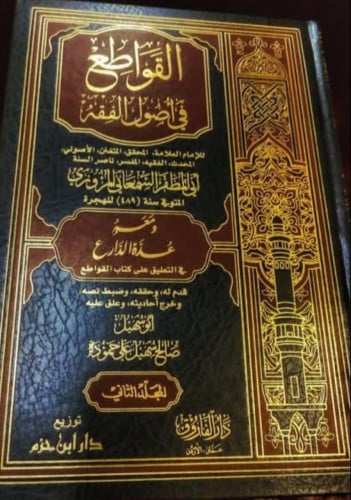 القواطع
في أصول الفقه
للإمام العلامة، المحقق، المتفنن، الأصولي،
المحدث، الفقيه، المفسر، ناصر السنة
أبي المظفر السمعاني المروزي
المتوفى سنة (٤٨٩) للهجرة
ومعه
عدة الدارع
في التعليق على كتاب القواطع
قدم له، وحققه، وضبط نصه
وخرج أحاديثه، وعلق عليه
أبو سهيل
صالح سهيل علي حمودة
المجلد الثاني
دار الفاروق
عمان - الأردن
توزيع
دار ابن حزم